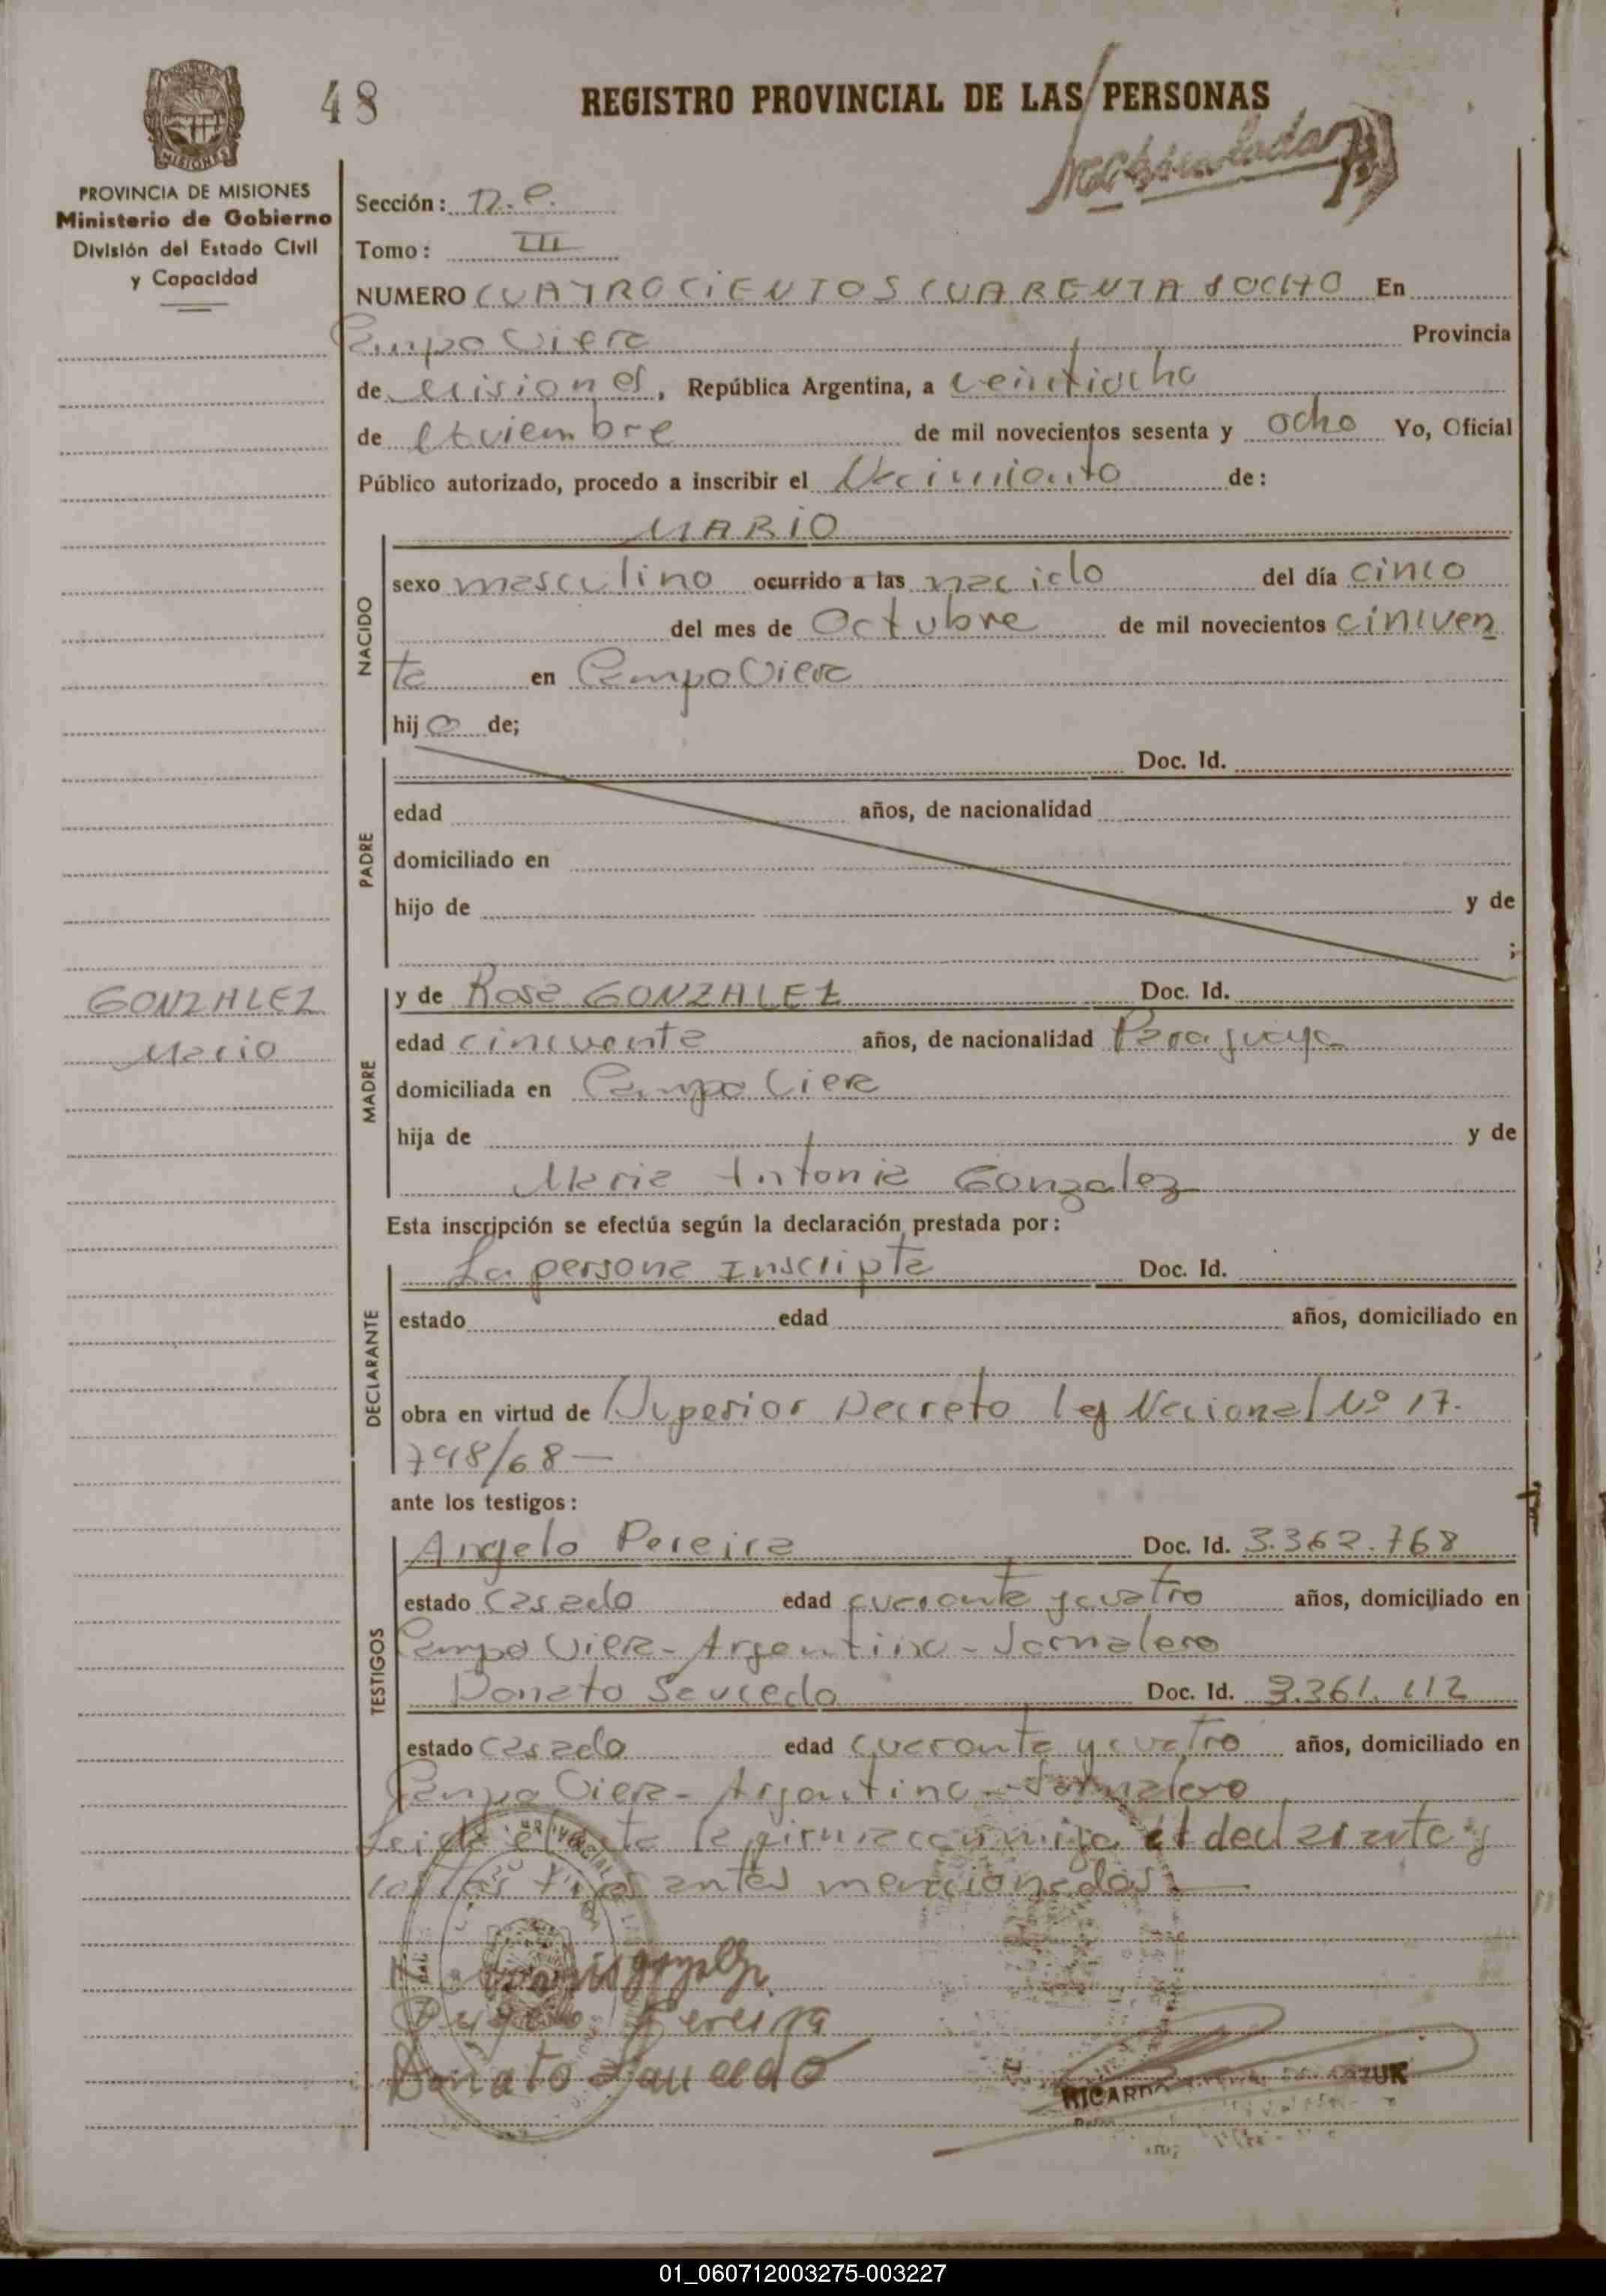 48
REGISTRO PROVINCIAL DE LAS PERSONAS
MISIONES
PROVINCIA DE MISIONES
Ministerio de Gobierno
División del Estado Civil
y Capacidad
Sección: D.e.
Tomo: III
NUMERO CUATROCIENTOS CUARENTA Y OCHO En
Campo Viera Provincia
de Misiones, República Argentina, a veintiocho
de Noviembre de mil novecientos sesenta y ocho Yo, Oficial
Público autorizado, procedo a inscribir el Nacimiento de:
MARIO
NACIDO
sexo masculino ocurrido a las nacido del día cinco
del mes de Octubre de mil novecientos cincuen
ta en Campo Viera
hijo de;
PADRE
Doc. Id.
edad años, de nacionalidad
domiciliado en
hijo de y de
;
GONZALEZ
Mario
MADRE
y de Rosa GONZALEZ Doc. Id.
edad cincuenta años, de nacionalidad Paraguaya
domiciliada en Campo Viera
hija de y de
Maria Antonia Gonzalez
Esta inscripción se efectúa según la declaración prestada por:
DECLARANTE
La persona Inscripta Doc. Id.
estado edad años, domiciliado en
obra en virtud de Superior Decreto ley Nacional Nº 17.
798/68—
ante los testigos:
TESTIGOS
Angelo Pereira Doc. Id. 3.362.768
estado casado edad cuarenta y cuatro años, domiciliado en
Campo Viera - Argentino - Jornalero
Donato Saucedo Doc. Id. 3.361.112
estado casado edad cuarenta y cuatro años, domiciliado en
Campo Viera - Argentino - Jornalero
Leida el acta la firma conmigo el declarante y
los testigos antes mencionados.
Mario gonzalez
Angelo Pereira
Donato Saucedo
RICARDO
01_060712003275-003227